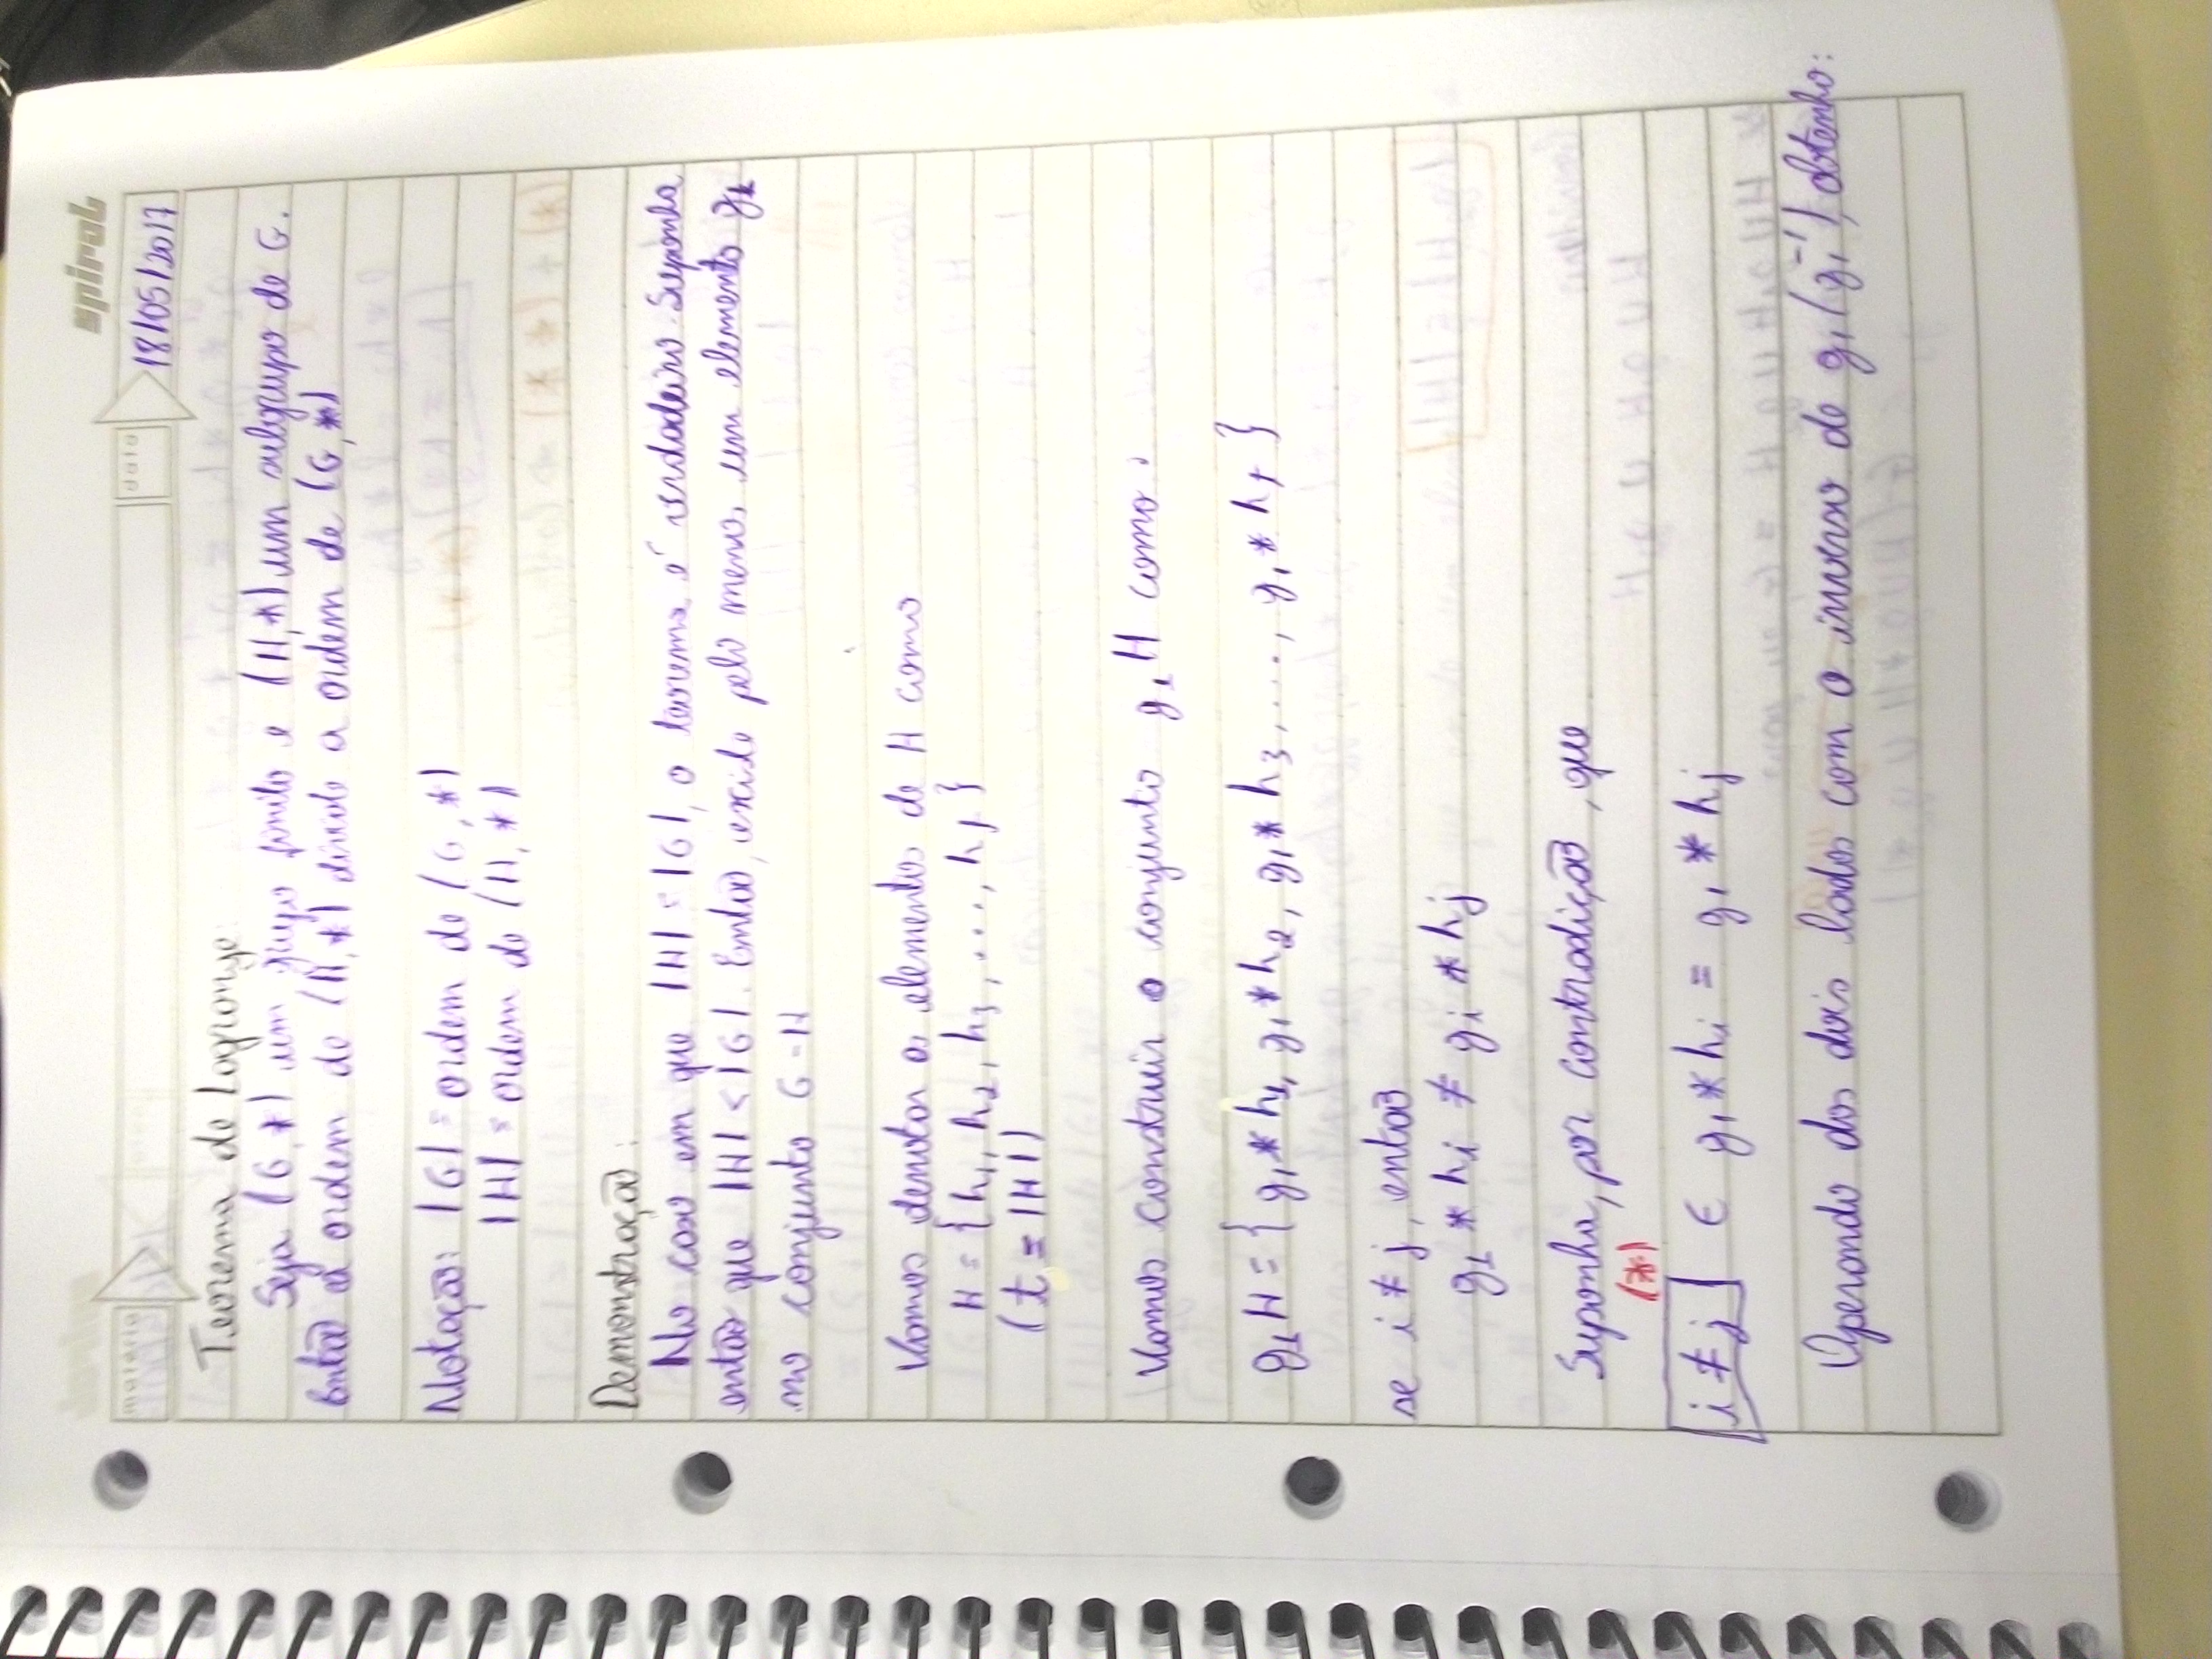 spiral
matéria
data
18/05/2017
Teorema de Lagrange:
Seja (G, *) um grupo finito e (H, *) um subgrupo de G.
Então a ordem de (H, *) divide a ordem de (G, *)
Notação: |G| = ordem de (G, *)
|H| = ordem de (H, *)
Demonstração:
No caso em que |H| = |G|, o teorema é verdadeiro. Suponha
então que |H| < |G|. Então, existe pelo menos um elemento g₁
no conjunto G - H
Vamos denotar os elementos de H como
H = {h₁, h₂, h₃, ..., hₜ}
(t = |H|)
Vamos construir o conjunto g₁H como:
g₁H = {g₁ * h₁, g₁ * h₂, g₁ * h₃, ..., g₁ * hₜ}
se i ≠ j, então
g₁ * hᵢ ≠ gᵢ * hⱼ
Suponha, por contradição, que
(*)
i ≠ j E g₁ * hᵢ = g₁ * hⱼ
Operando dos dois lados com o inverso de g₁ (g₁⁻¹), obtenho: